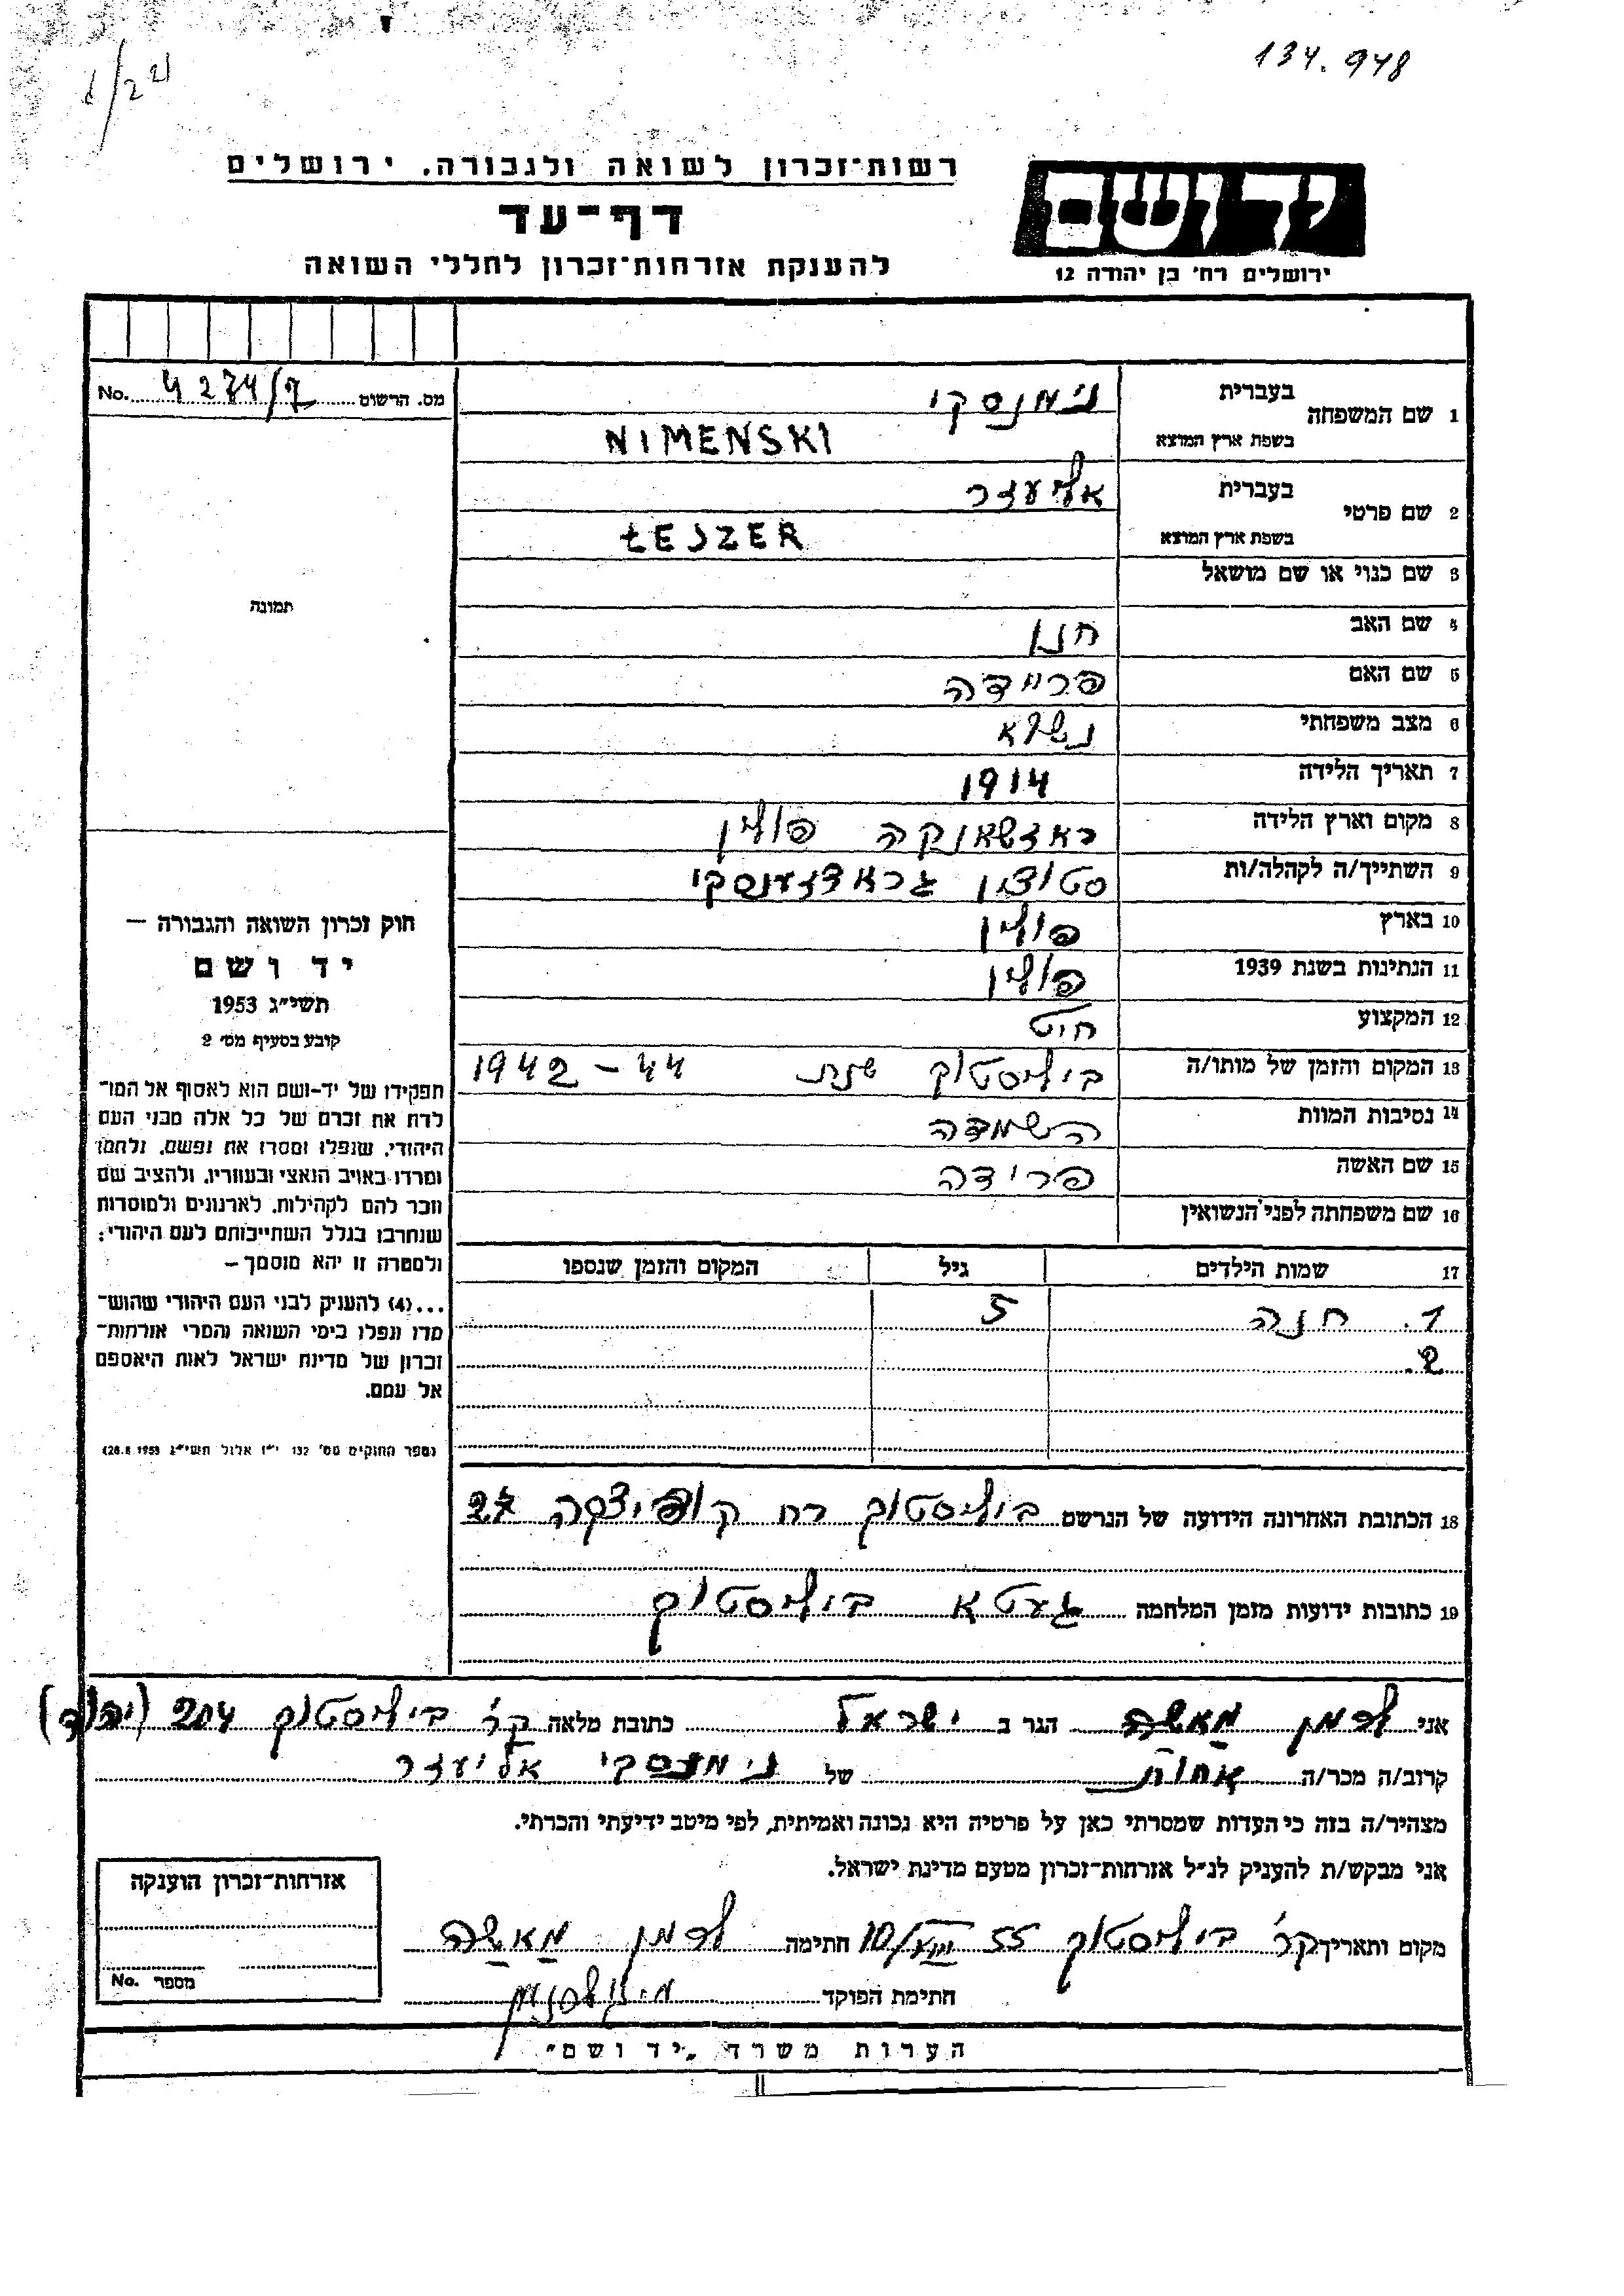 134.948
רשות־זכרון לשואה ולגבורה. ירושלים
דף־עד
להענקת אזרחות־זכרון לחללי השואה
יד ושם
ירושלים רח׳ בן יהודה 12
מס. הרשום 4274/7 No.
1 שם המשפחה
בעברית נימנסקי
בשפת ארץ המוצא NIMENSKI
2 שם פרטי
בעברית אליעזר
בשפת ארץ המוצא ŁEJZER
3 שם כנוי או שם מושאל
4 שם האב חנן
5 שם האם פריידה
6 מצב משפחתי נשוא
7 תאריך הלידה 1914
8 מקום וארץ הלידה פולין
9 השתייך/ה לקהלה/ות
10 בארץ פולין
11 הנתינות בשנת 1939 פולין
12 המקצוע חיט
13 המקום והזמן של מותו/ה ביליסטוק שנת 1942 – 44
14 נסיבות המוות השמדה
15 שם האשה פרידה
16 שם משפחתה לפני הנשואין
17 שמות הילדים גיל המקום והזמן שנספו
1. חנה 5
2.
18 הכתובת האחרונה הידועה של הנרשם ביליסטוק רח
19 כתובות ידועות מזמן המלחמה געטא ביליסטוק
תמונה
חוק זכרון השואה והגבורה —
יד ושם
תשי״ג 1953
קובע בסעיף מס׳ 2
תפקידו של יד-ושם הוא לאסוף אל המו־
לדת את זכרם של כל אלה מבני העם
היהודי, שנפלו ומסרו את נפשם, נלחמו
ומרדו באויב הנאצי ובעוזריו, ולהציב שם
וזכר להם לקהילות, לארגונים ולמוסדות
שנחרבו בגלל השתייכותם לעם היהודי;
ולמטרה זו יהא מוסמך —
...(4) להעניק לבני העם היהודי שהוש־
מדו ונפלו בימי השואה והמרי אזרחות־
זכרון של מדינת ישראל לאות היאספם
אל עמם.
(ספר החוקים מס׳ 132 י״ז אלול תשי״ג 28.8.1953)
אני לדמן מאשה הגר ב ישראל כתובת מלאה קר׳ ביליסטוק 204 (יהוד)
קרוב/ה מכר/ה אחות של נימנסקי אליעזר
מצהיר/ה בזה כי העדות שמסרתי כאן על פרטיה היא נכונה ואמיתית, לפי מיטב ידיעתי והכרתי.
אני מבקש/ת להעניק לנ״ל אזרחות־זכרון מטעם מדינת ישראל.
מקום ותאריך קר׳ ביליסטוק 55 חתימה לדמן מאשה
חתימת הפוקד
אזרחות־זכרון הוענקה
מספר No.
הערות משרד „יד ושם״